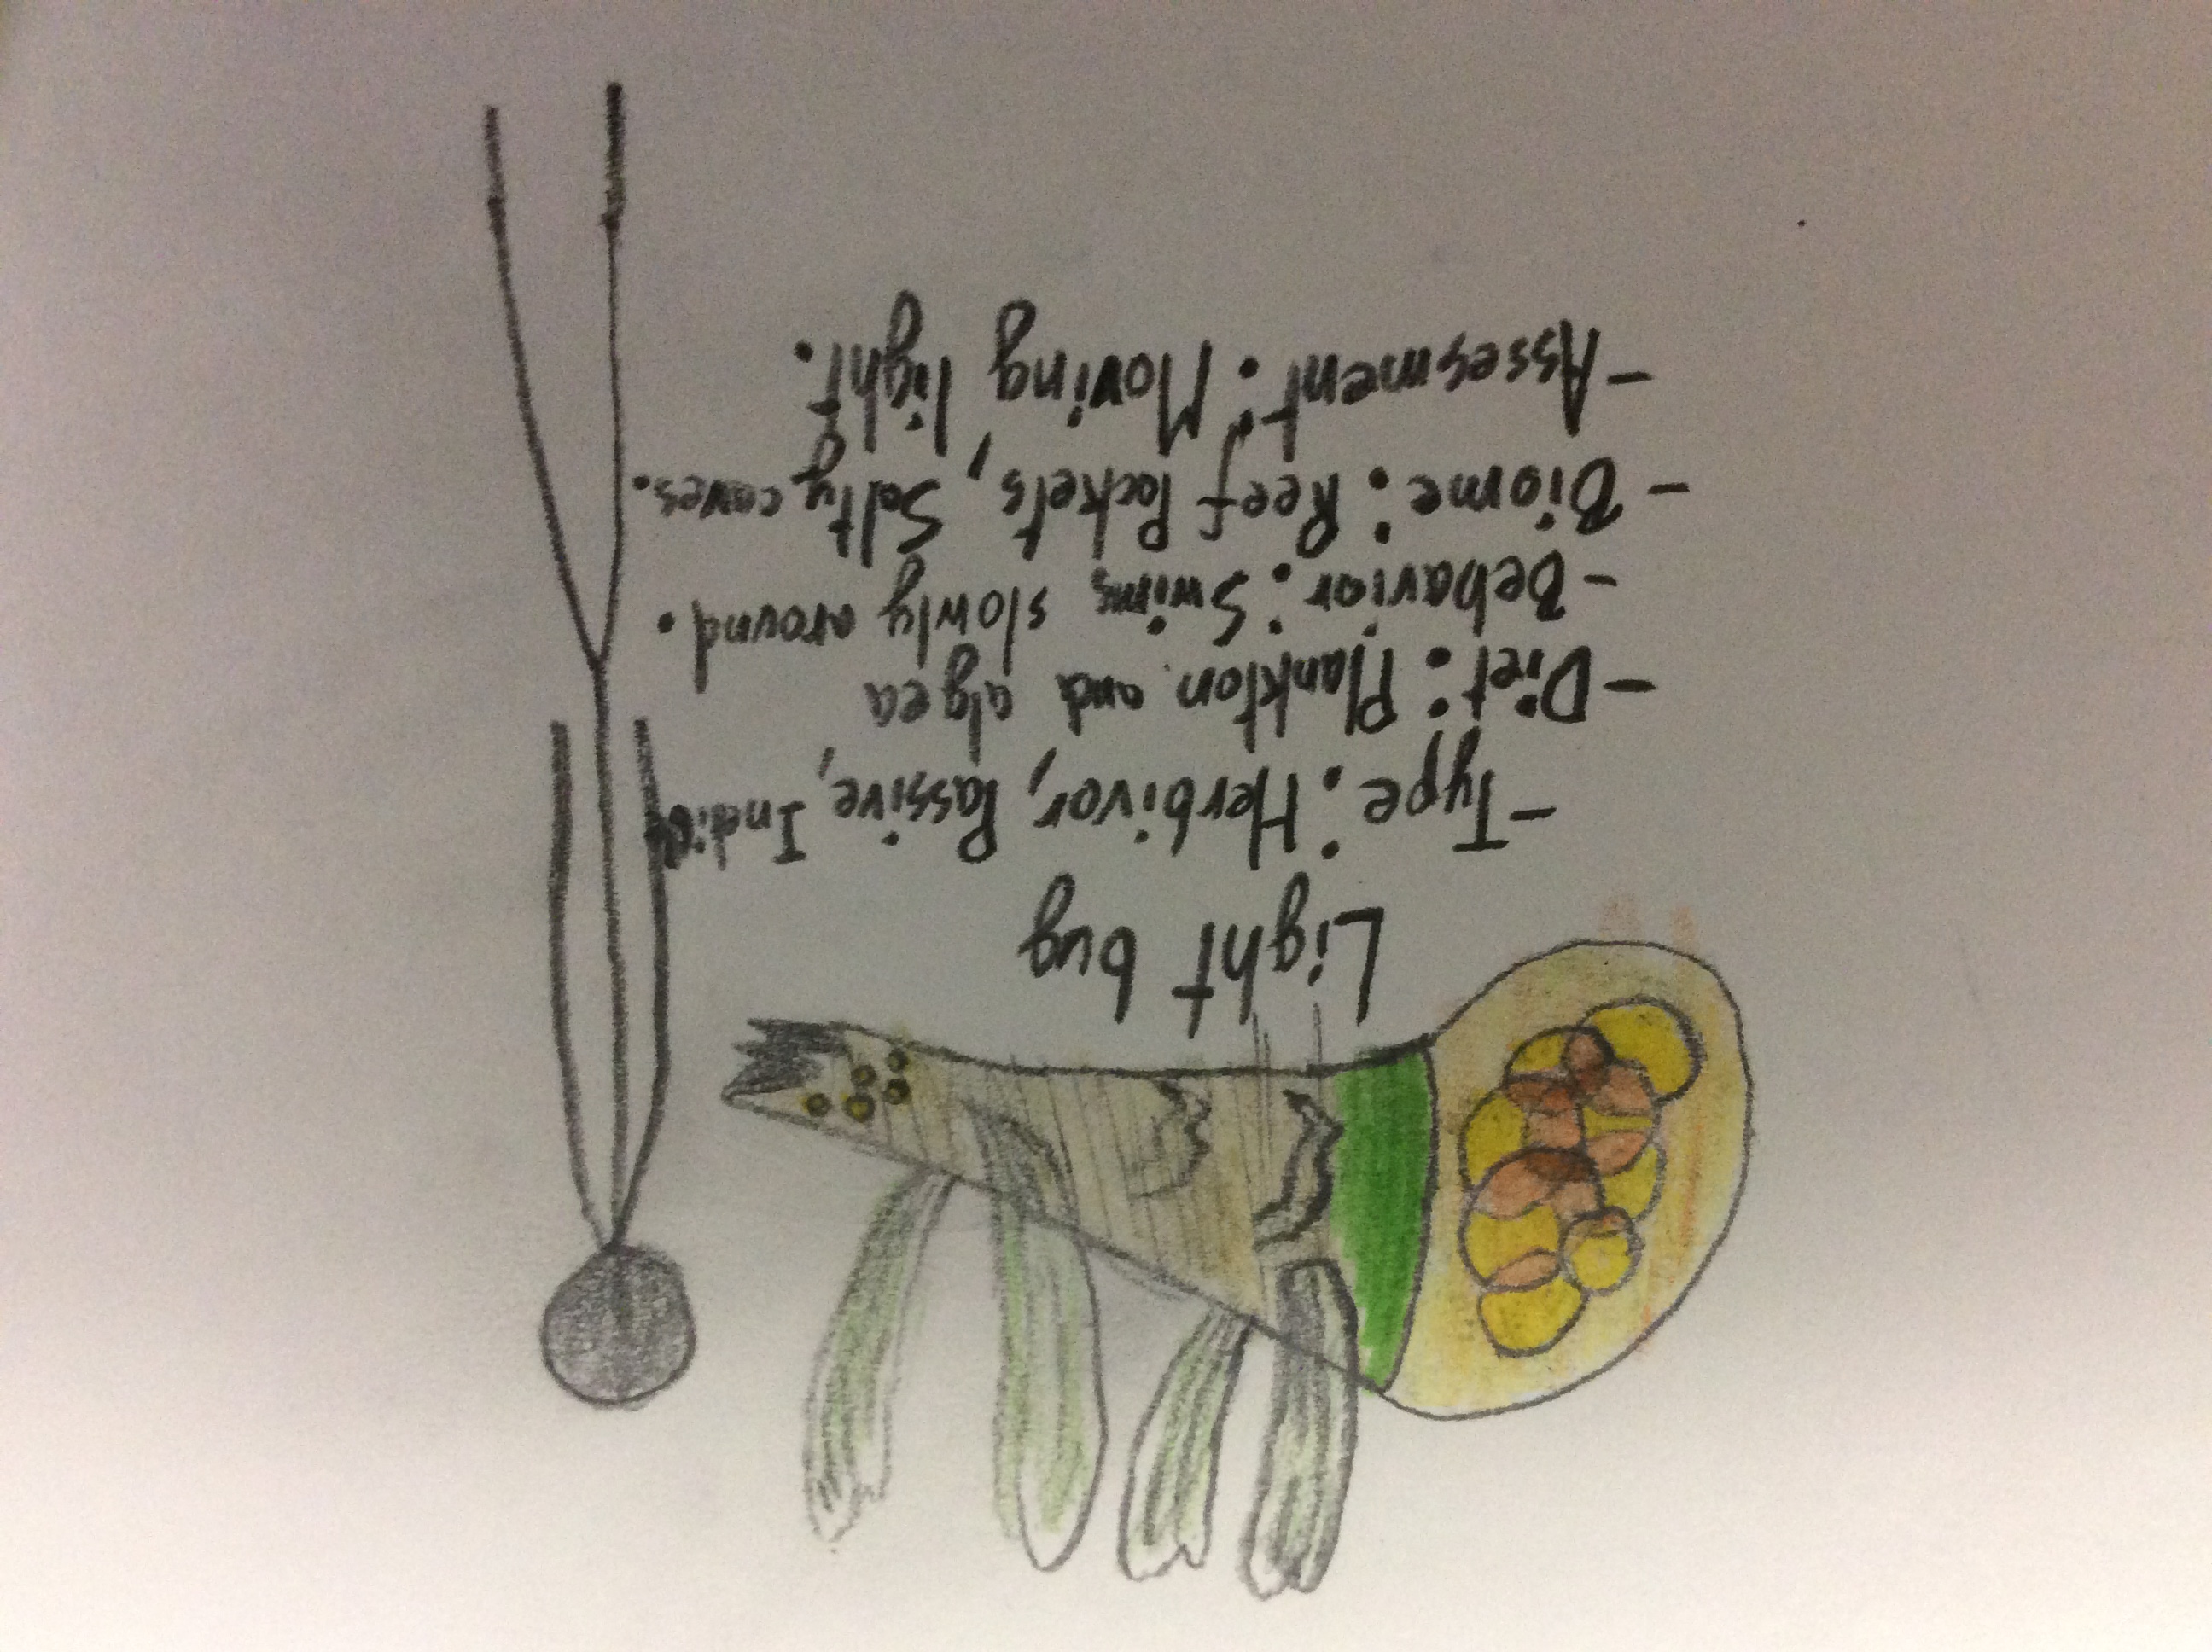 Light bug
-Type: Herbivor, Passive,
-Diet: Plankton and algea
-Behavior: Swims slowly around.
-Biome: Reef Pockets, Salty caves.
-Assesment: Moving light.